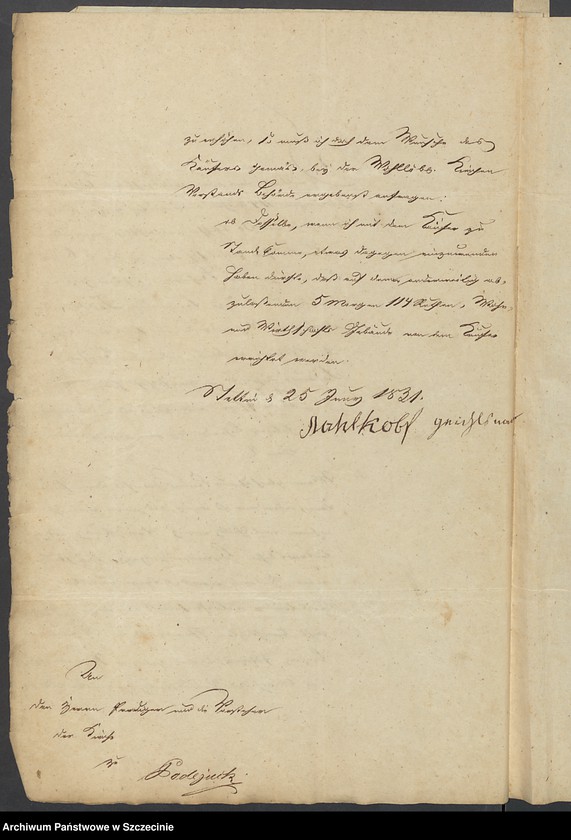 zu erhöhen, so muß ich doch dem Wunsche des
Käufers gemäß, bey der Wohllöbl. Kirchen
Vorstands Behörde ergebenst anfragen:
ob dieselbe, wenn ich mit dem Käufer zu
Stande komme, etwas dagegen einzuwenden
haben dürfte, daß auf denen anderweitig ab-
zulassenden 5 Morgen 114 Ruthen, Wohn-
und Wirthschafts Gebäude von dem Käufer
errichtet werden.
Stettin d 25 Juny 1831.
Mahlkopf
An
den Herrn Prediger und die Vorsteher
der Kirche
zu
Podejuch.
Archiwum Państwowe w Szczecinie